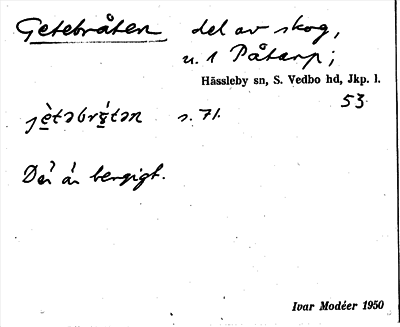 Getebråten del av skog,
u. 1 Påtarp;
Hässleby sn, S. Vedbo hd, Jkp. l.
53
s. 71.
De? är bergigt.
Ivar Modéer 1950